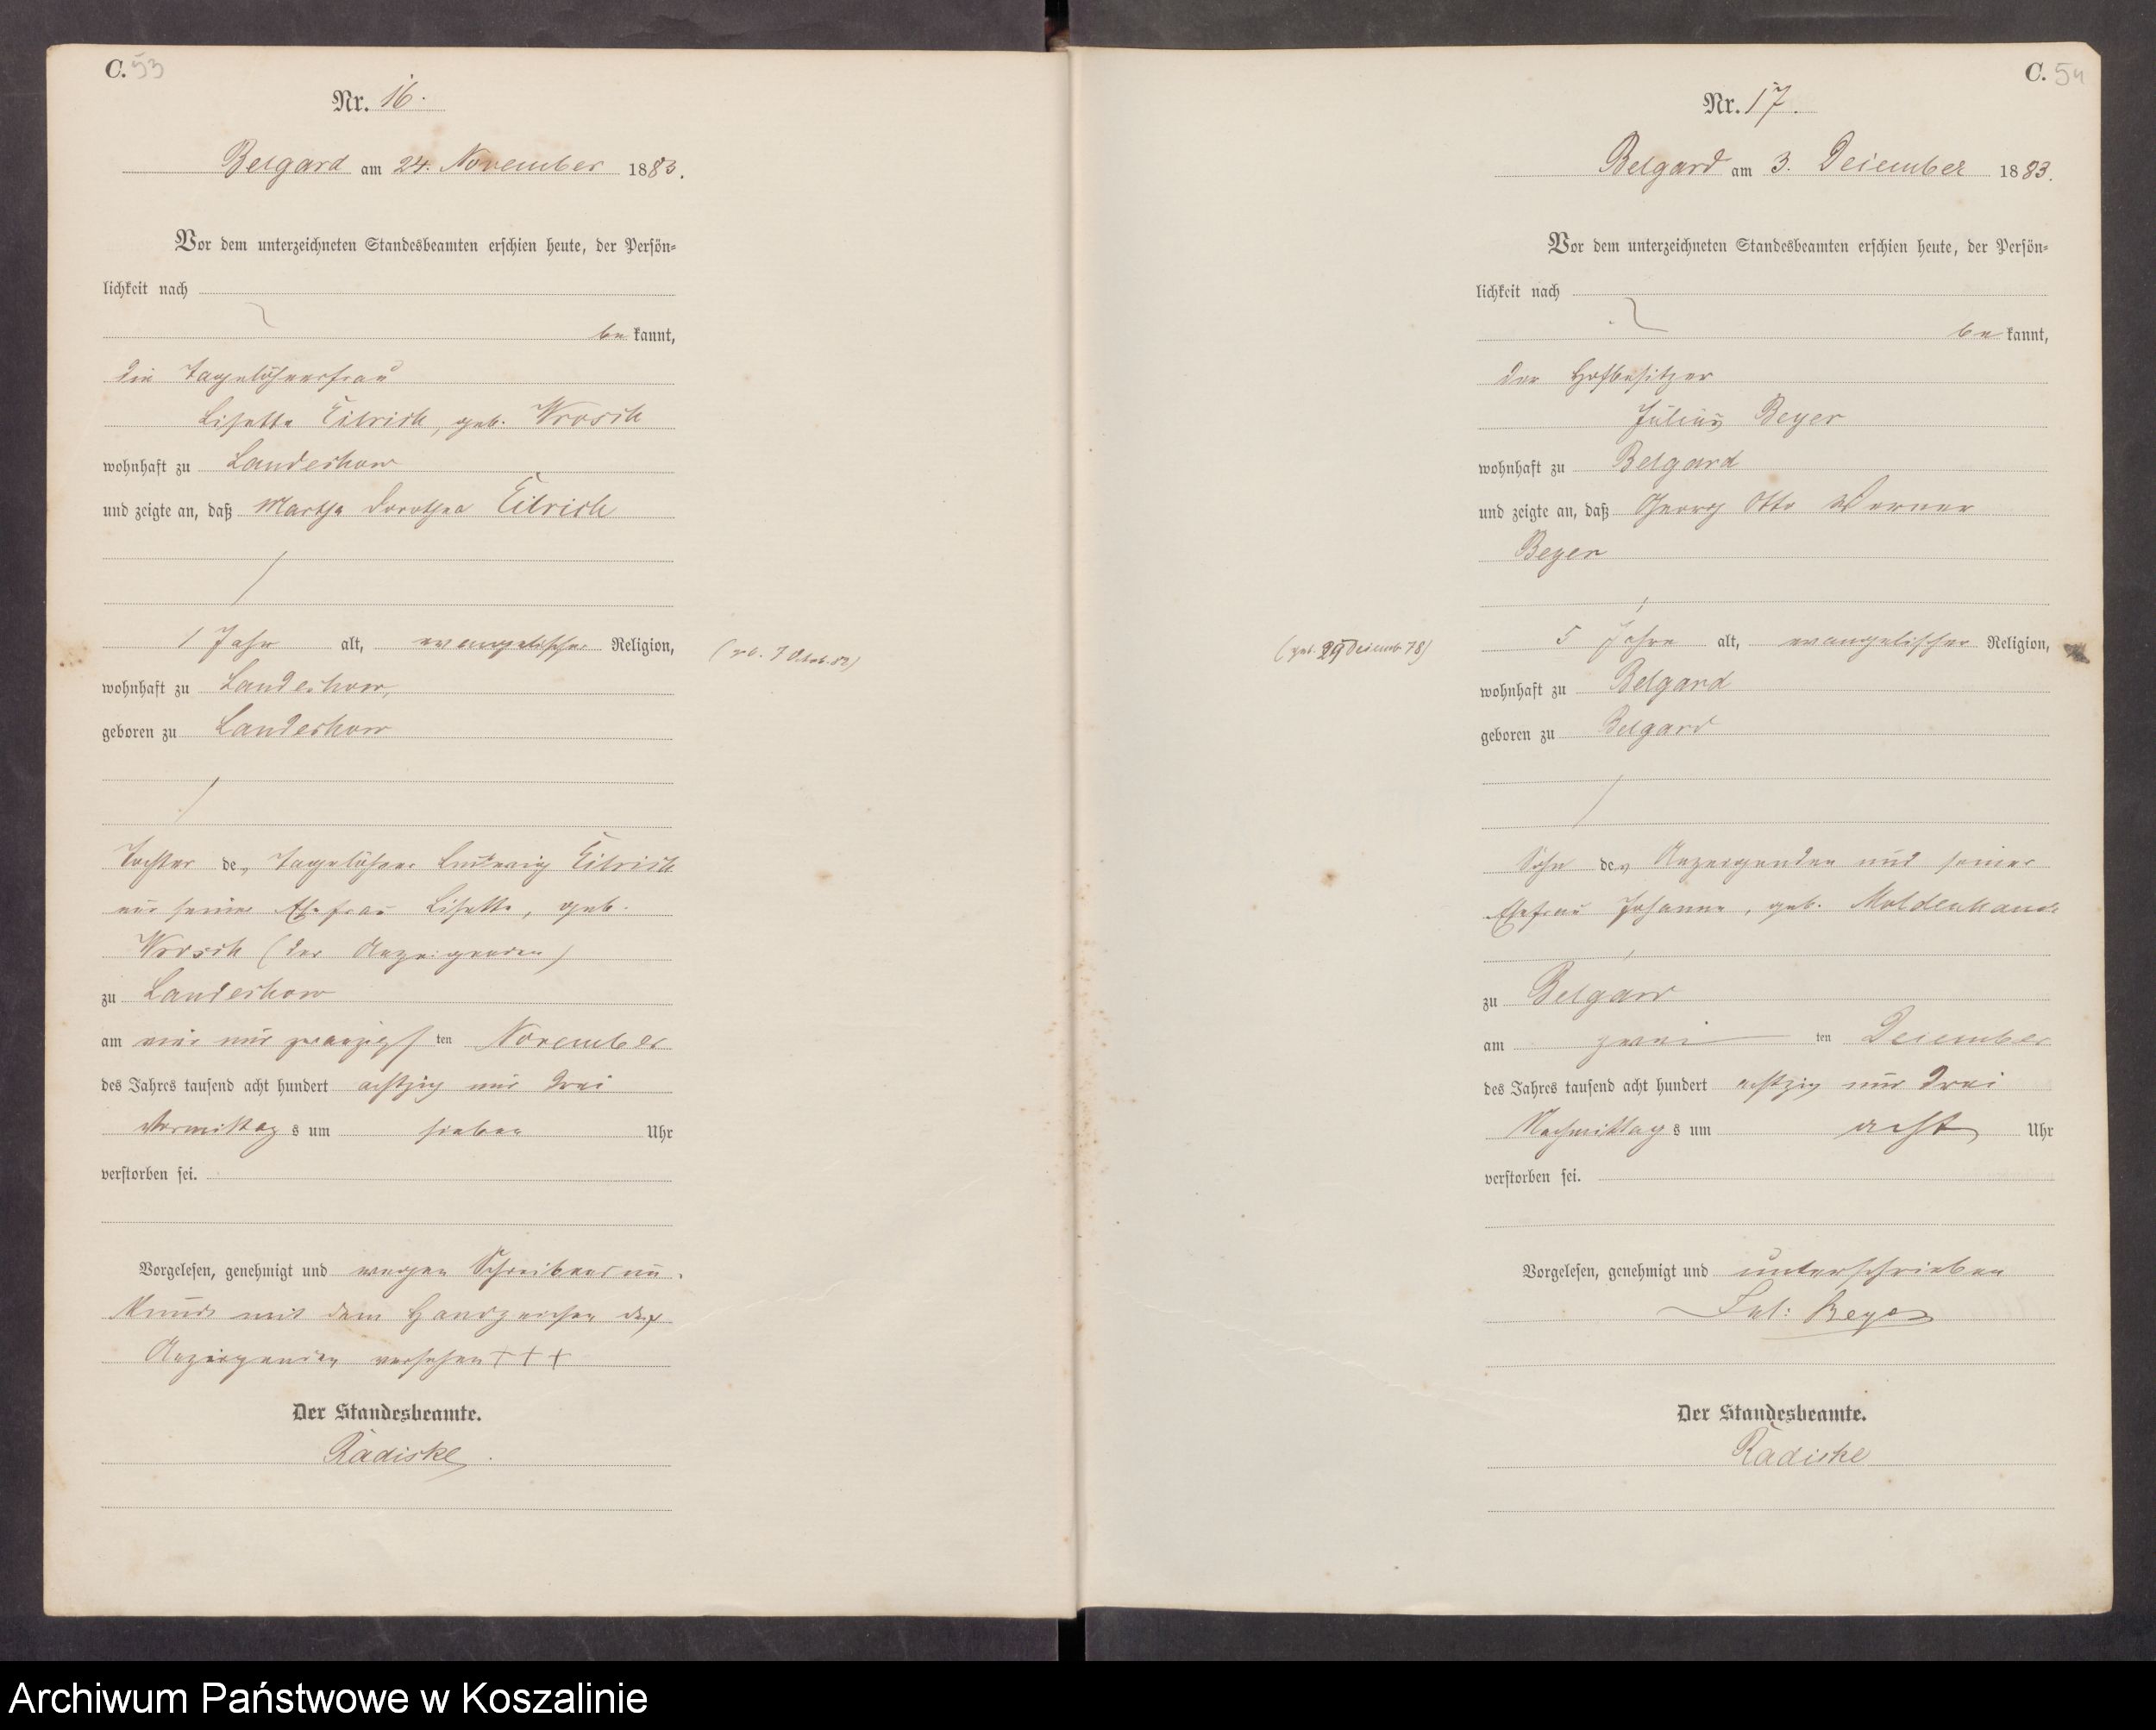 C. 53
Nr. 16.
Belgard am 24. November 1883.
Vor dem unterzeichneten Standesbeamten erschien heute, der Persön-
lichkeit nach
be kannt,
die Tagelöhnerfrau
Lisette Eilrich, geb. Wrosch
wohnhaft zu Landechow
und zeigte an, daß Martha Dorothea Eilrich
1 Jahr alt, evangelischer Religion,
wohnhaft zu Landechow,
geboren zu Landechow
Tochter des Tagelöhner Ludewig Eilrich
und seiner Ehefrau Lisette, geb.
Wrosch (der Anzeigenden)
zu Landechow
am vier und zwanzigsten November
des Jahres tausend acht hundert achtzig und drei
Vormittag s um sieben Uhr
verstorben sei.
Vorgelesen, genehmigt und wegen Schreibensun-
kunde mit dem Handzeichen der
Anzeigenden versehen +++
Der Standesbeamte.
Radiske.
C. 54
Nr. 17.
Belgard am 3. Dezember 1883.
Vor dem unterzeichneten Standesbeamten erschien heute, der Persön-
lichkeit nach
be kannt,
der Hofbesitzer
Julius Beyer
wohnhaft zu Belgard
und zeigte an, daß Georg Otto Werner
Beyer
(geb. 29 Decemb 78) 5 Jahre alt, evangelischer Religion,
wohnhaft zu Belgard
geboren zu Belgard
Sohn des Anzeigenden und seiner
Ehefrau Johanna, geb. Moldenhauer
zu Belgard
am zwei ten Dezember
des Jahres tausend acht hundert achtzig und drei
Nachmittag s um acht Uhr
verstorben sei.
Vorgelesen, genehmigt und unterschrieben
Jul: Beyer
Der Standesbeamte.
Radiske
Archiwum Państwowe w Koszalinie